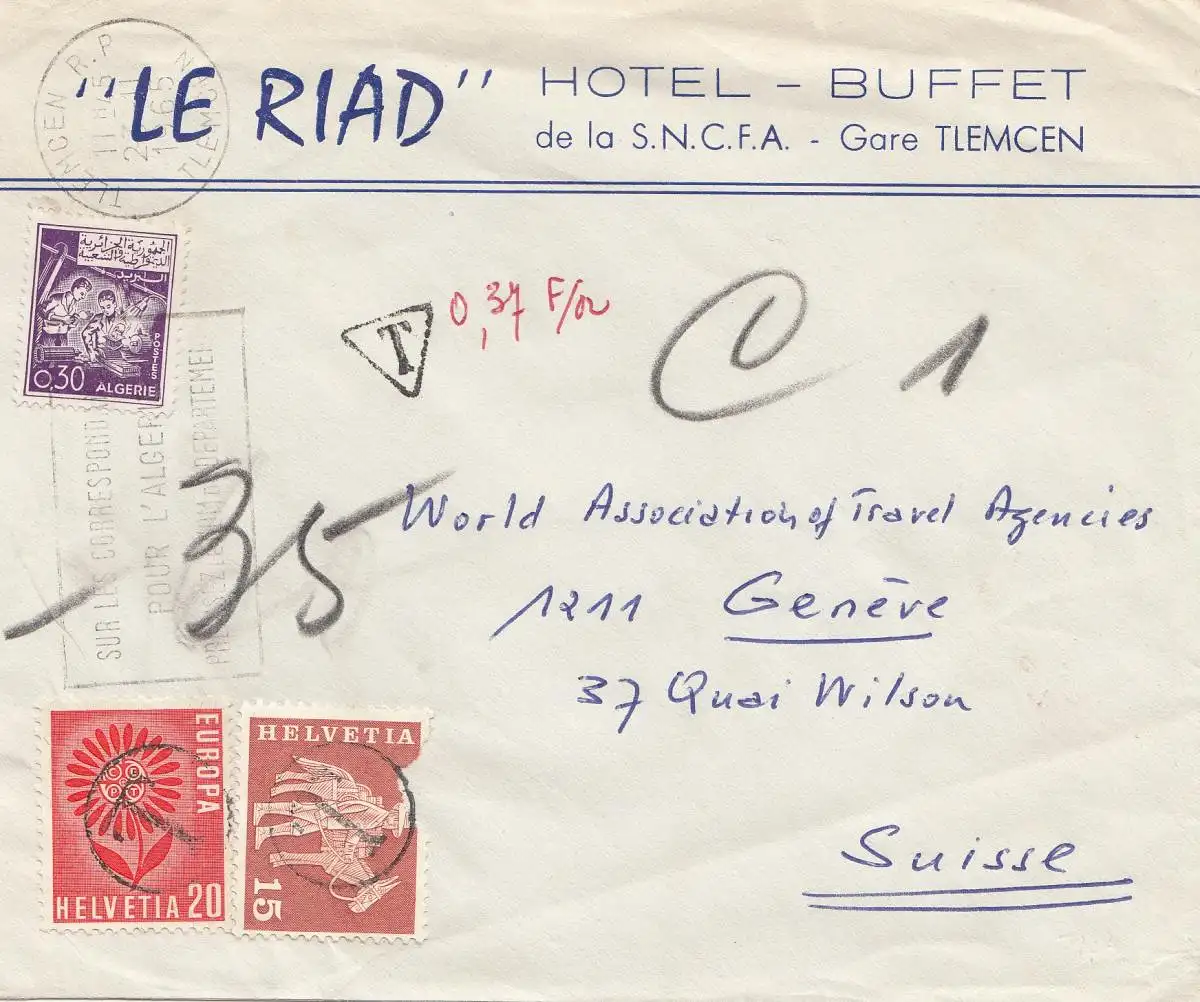 "LE RIAD" HOTEL - BUFFET
de la S.N.C.F.A. - Gare TLEMCEN
TLEMCEN R.P
11H45
1965
TLEMCEN
الجمهورية الجزائرية
الديموقراطية الشعبية
البريد
POSTES
0,30 ALGERIE
T 0,37 F/or
1
SUR LES CORRESPONDA
POUR L'ALGER
DEPARTEMEN
35
World Association of Travel Agencies
1211 Genève
37 Quai Wilson
Suisse
EUROPA
C E P T
HELVETIA 20
T
HELVETIA
15
T